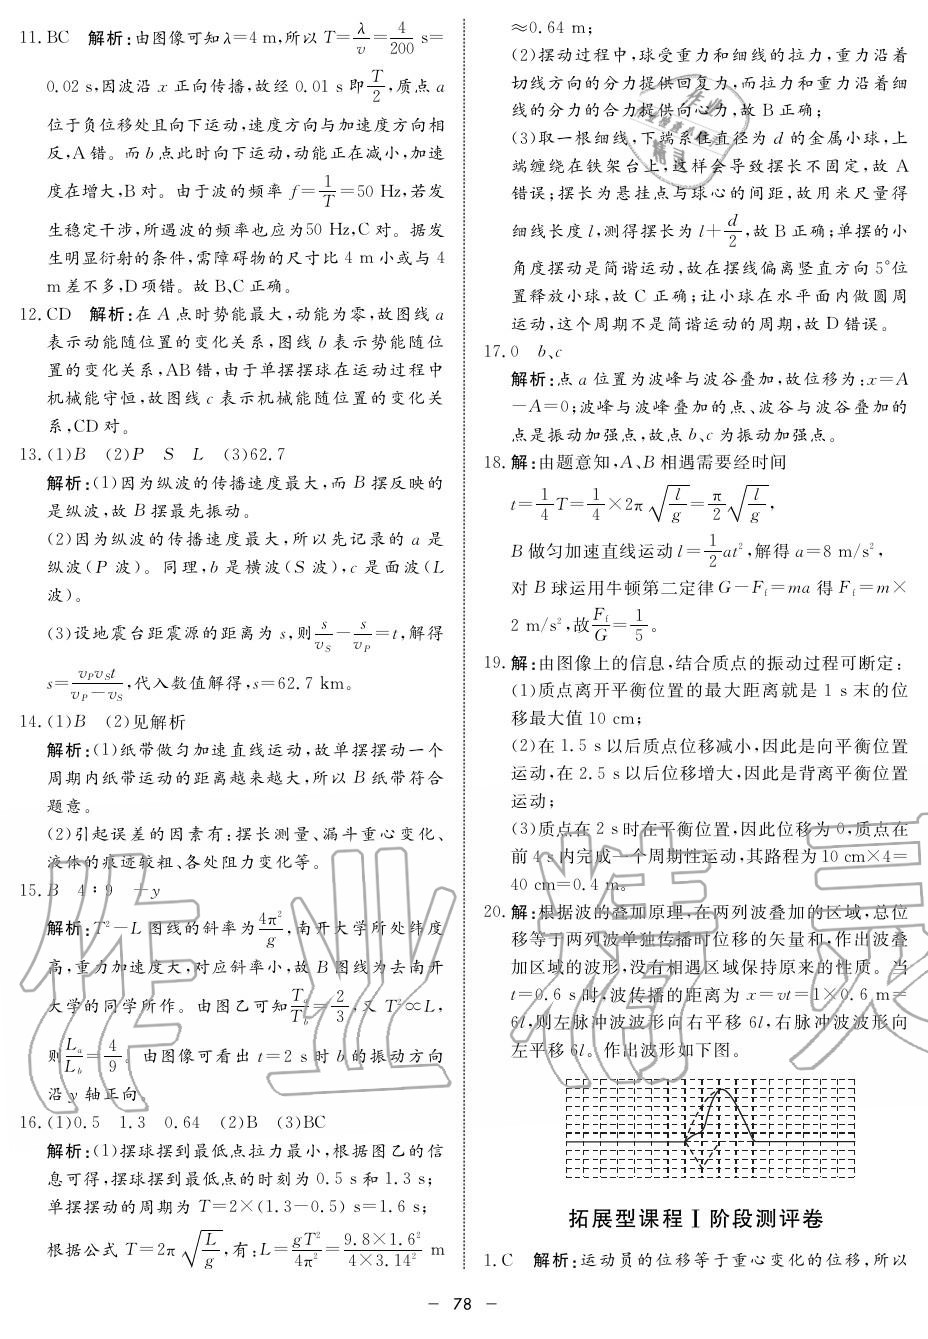 11. BC　解析:由图像可知λ=4 m,所以 T=λ/v=4/200 s=
0.02 s,因波沿 x 正向传播,故经 0.01 s 即 T/2,质点 a
位于负位移处且向下运动,速度方向与加速度方向相
反,A 错。而 b 点此时向下运动,动能正在减小,加速
度在增大,B 对。由于波的频率 f=1/T=50 Hz,若发
生稳定干涉,所遇波的频率也应为50 Hz,C 对。据发
生明显衍射的条件,需障碍物的尺寸比 4 m 小或与 4
m 差不多,D 项错。故 B、C 正确。
12. CD　解析:在 A 点时势能最大,动能为零,故图线 a
表示动能随位置的变化关系,图线 b 表示势能随位
置的变化关系,AB 错,由于单摆摆球在运动过程中
机械能守恒,故图线 c 表示机械能随位置的变化关
系,CD 对。
13. (1)B　(2)P　S　L　(3)62.7
解析:(1)因为纵波的传播速度最大,而 B 摆反映的
是纵波,故 B 摆最先振动。
(2)因为纵波的传播速度最大,所以先记录的 a 是
纵波(P 波)。同理,b 是横波(S 波),c 是面波(L
波)。
(3)设地震台距震源的距离为 s,则 s/v_S − s/v_P = t,解得
s= v_P v_S t/(v_P−v_S),代入数值解得,s=62.7 km。
14. (1)B　(2)见解析
解析:(1)纸带做匀加速直线运动,故单摆摆动一个
周期内纸带运动的距离越来越大,所以 B 纸带符合
题意。
(2)引起误差的因素有:摆长测量、漏斗重心变化、
液体的痕迹较粗、各处阻力变化等。
15. B　4∶9　+y
解析:T²−L 图线的斜率为 4π²/g,南开大学所处纬度
高,重力加速度大,对应斜率小,故 B 图线为去南开
大学的同学所作。由图乙可知 T_a/T_b=2/3,又 T²∝L,
则 L_a/L_b=4/9。由图像可看出 t=2 s 时 b 的振动方向
沿 y 轴正向。
16. (1)0.5　1.3　0.64　(2)B　(3)BC
解析:(1)摆球摆到最低点拉力最小,根据图乙的信
息可得,摆球摆到最低点的时刻为 0.5 s 和 1.3 s;
单摆摆动的周期为 T=2×(1.3−0.5) s=1.6 s;
根据公式 T=2π√(L/g),有:L=gT²/4π²=9.8×1.6²/4×3.14² m
≈0.64 m;
(2)摆动过程中,球受重力和细线的拉力,重力沿着
切线方向的分力提供回复力,而拉力和重力沿着细
线的分力的合力提供向心力,故 B 正确;
(3)取一根细线,下端系住直径为 d 的金属小球,上
端缠绕在铁架台上,这样会导致摆长不固定,故 A
错误;摆长为悬挂点与球心的间距,故用米尺量得
细线长度 l,测得摆长为 l+d/2,故 B 正确;单摆的小
角度摆动是简谐运动,故在摆线偏离竖直方向 5°位
置释放小球,故 C 正确;让小球在水平面内做圆周
运动,这个周期不是简谐运动的周期,故 D 错误。
17. 0　b、c
解析:点 a 位置为波峰与波谷叠加,故位移为:x=A
−A=0;波峰与波峰叠加的点、波谷与波谷叠加的
点是振动加强点,故点 b、c 为振动加强点。
18. 解:由题意知,A、B 相遇需要经时间
t=1/4 T=1/4×2π√(l/g)=π/2 √(l/g),
B 做匀加速直线运动 l=1/2 at²,解得 a=8 m/s²,
对 B 球运用牛顿第二定律 G−F_f=ma 得 F_f=m×
2 m/s²,故 F_f/G=1/5。
19. 解:由图像上的信息,结合质点的振动过程可断定:
(1)质点离开平衡位置的最大距离就是 1 s 末的位
移最大值 10 cm;
(2)在 1.5 s 以后质点位移减小,因此是向平衡位置
运动,在 2.5 s 以后位移增大,因此是背离平衡位置
运动;
(3)质点在 2 s 时在平衡位置,因此位移为 0,质点在
前 4 s 内完成一个周期性运动,其路程为 10 cm×4=
40 cm=0.4 m。
20. 解:根据波的叠加原理,在两列波叠加的区域,总位
移等于两列波单独传播时位移的矢量和,作出波叠
加区域的波形,没有相遇区域保持原来的性质。当
t=0.6 s 时,波传播的距离为 x=vt=1×0.6 m=
6l,则左脉冲波波形向右平移 6l,右脉冲波波形向
左平移 6l。作出波形如下图。
拓展型课程Ⅰ阶段测评卷
1. C　解析:运动员的位移等于重心变化的位移,所以
− 78 −
作业精灵